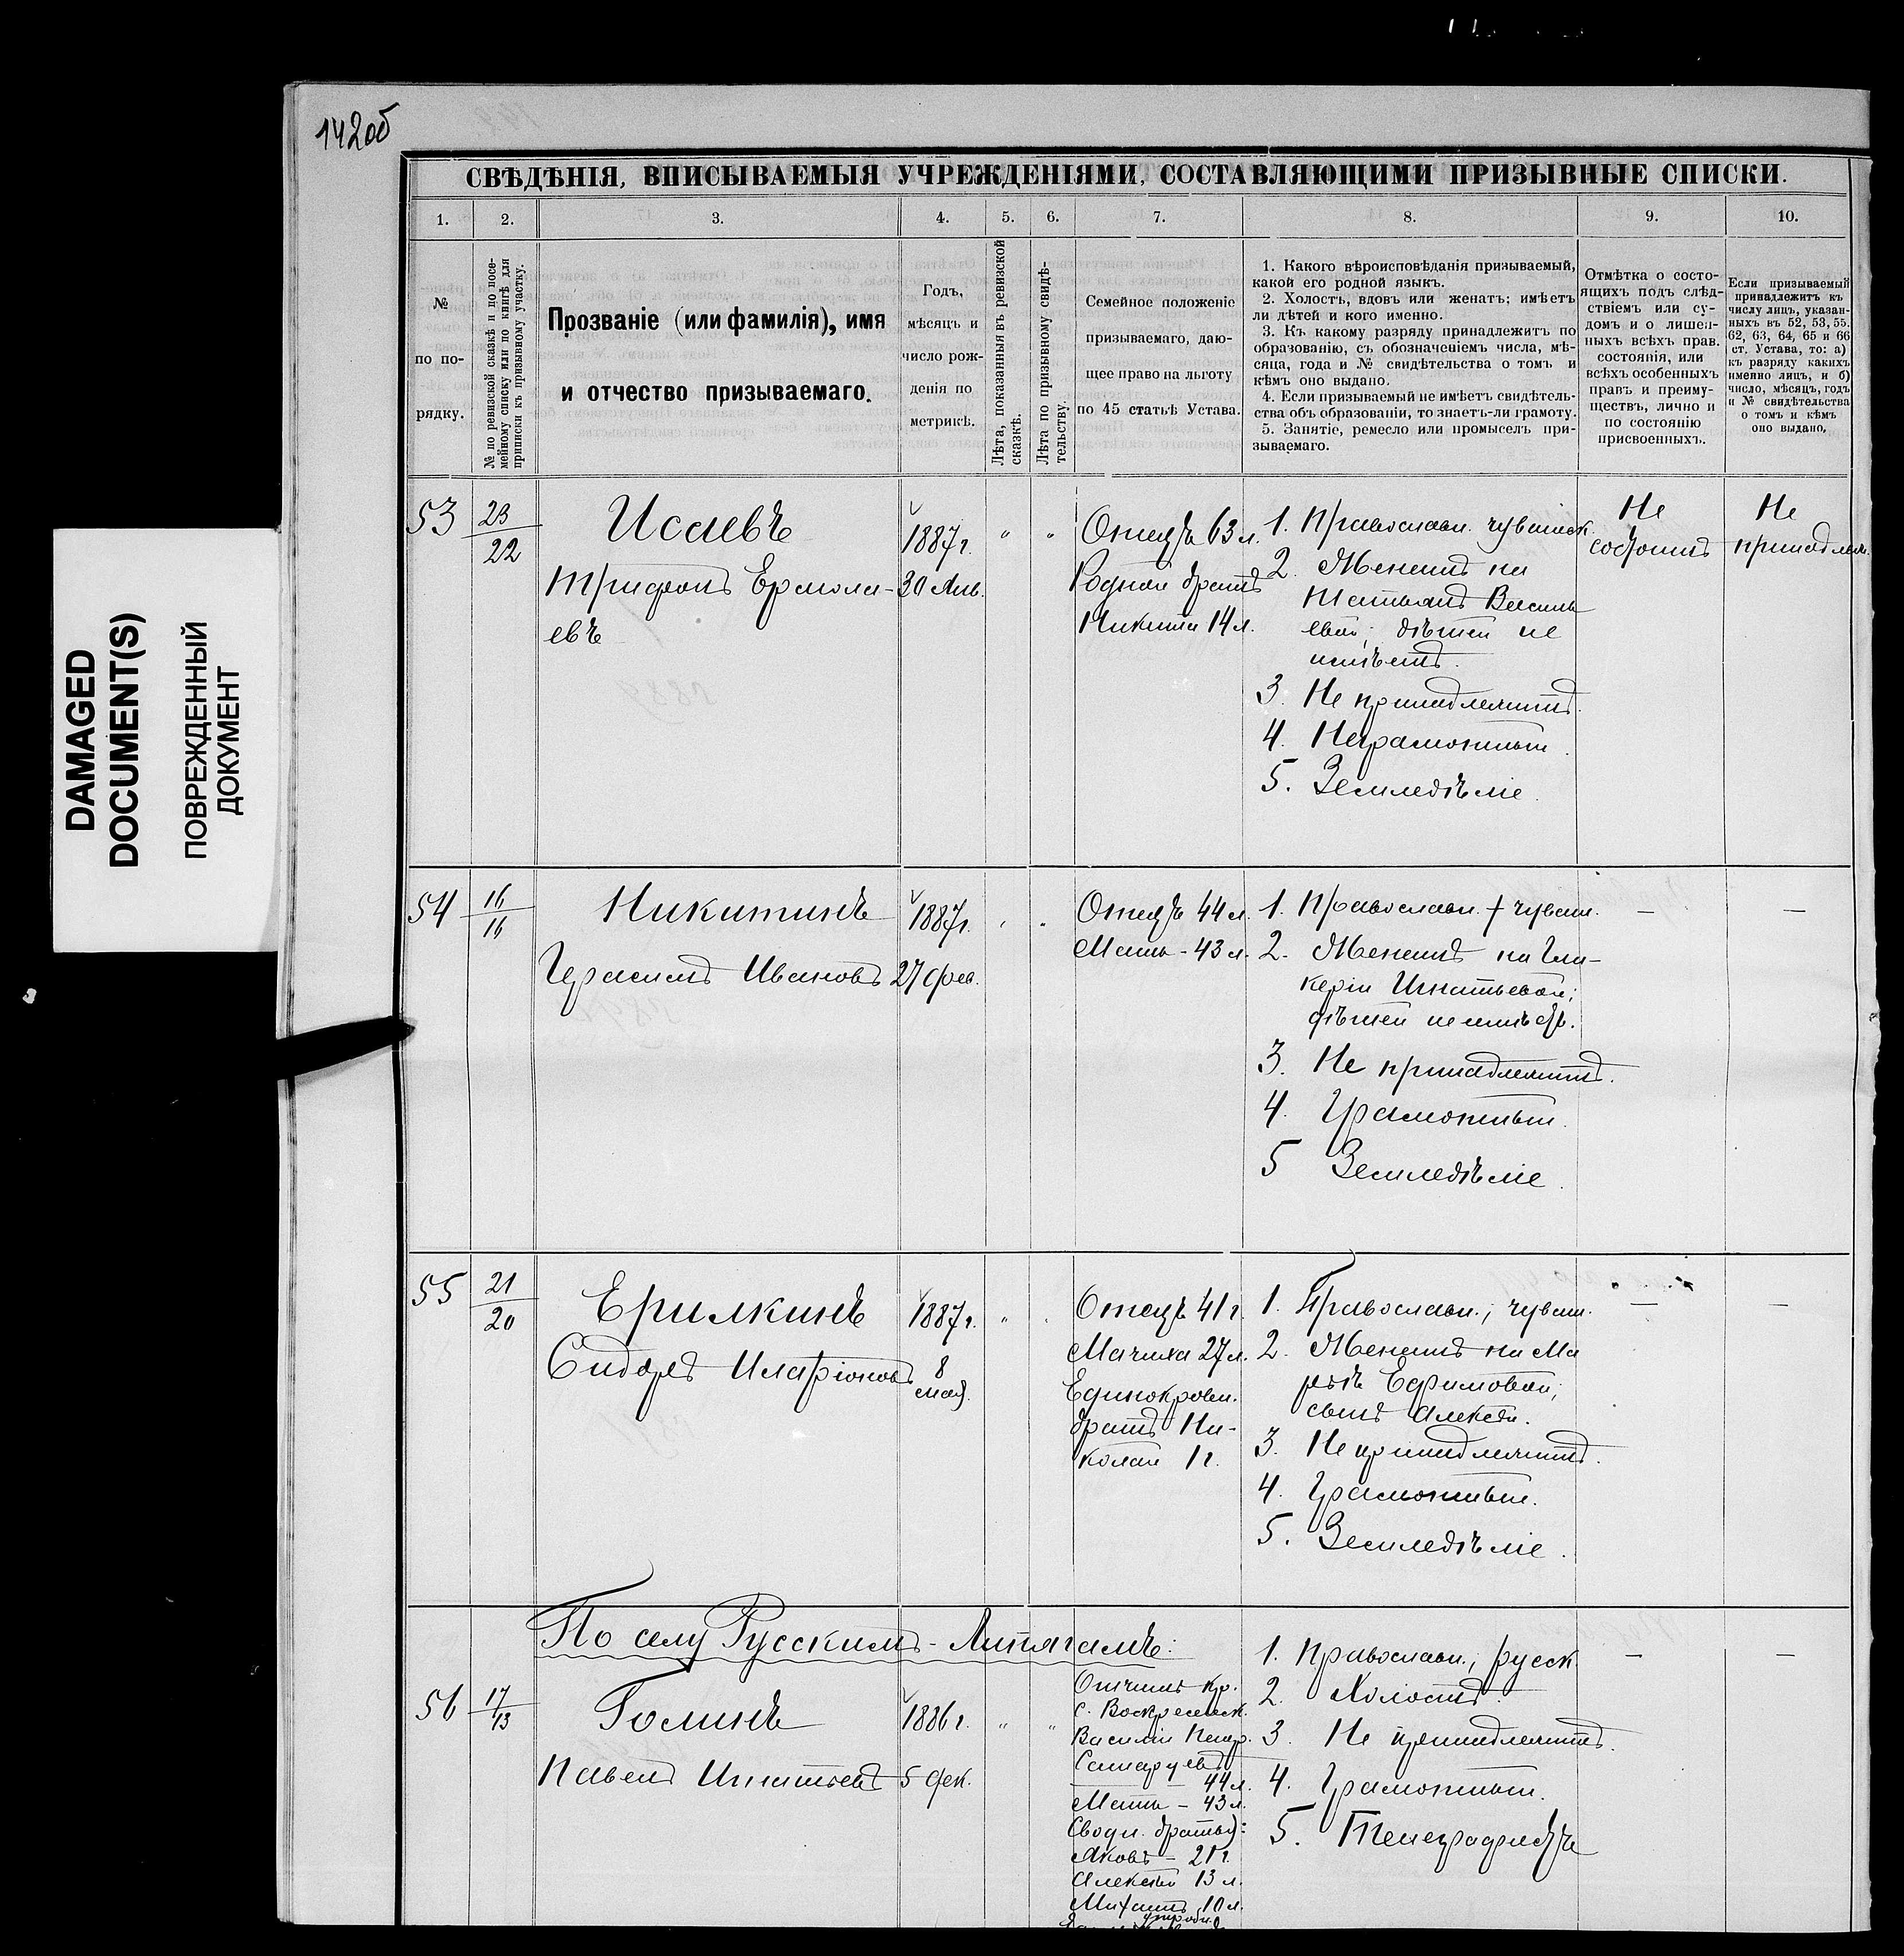 142об
DAMAGED
DOCUMENT(S)
ПОВРЕЖДЕННЫЙ
ДОКУМЕНТ
СВѢДѢНІЯ, ВПИСЫВАЕМЫЯ УЧРЕЖДЕНІЯМИ, СОСТАВЛЯЮЩИМИ ПРИЗЫВНЫЕ СПИСКИ.
1. 2. 3. 4. 5. 6. 7. 8. 9. 10.
№
по по-
рядку.
№ по ревизской сказкѣ и по посе-
мейному списку или по книгѣ для
приписки къ призывному участку.
Прозваніе (или фамилія), имя
и отчество призываемаго.
Годъ,
мѣсяцъ и
число рож-
денія по
метрикѣ.
Лѣта, показанныя въ ревизской
сказкѣ.
Лѣта по призывному свидѣ-
тельству.
Семейное положеніе
призываемаго, даю-
щее право на льготу
по 45 статьѣ Устава.
1. Какого вѣроисповѣданія призываемый,
какой его родной языкъ.
2. Холостъ, вдовъ или женатъ; имѣетъ
ли дѣтей и кого именно.
3. Къ какому разряду принадлежитъ по
образованію, съ обозначеніемъ числа, мѣ-
сяца, года и № свидѣтельства о томъ и
кѣмъ оно выдано.
4. Если призываемый не имѣетъ свидѣтель-
ства объ образованіи, то знаетъ-ли грамоту.
5. Занятіе, ремесло или промыселъ при-
зываемаго.
Отмѣтка о состо-
ящихъ подъ слѣд-
ствіемъ или су-
домъ и о лишен-
ныхъ всѣхъ прав.
состоянія, или
всѣхъ особенныхъ
правъ и преиму-
ществъ, лично и
по состоянію
присвоенныхъ.
Если призываемый
принадлежитъ къ
числу лицъ, указан-
ныхъ въ 52, 53, 55.
62, 63, 64, 65 и 66
ст. Устава, то: а)
къ разряду какихъ
именно лицъ, и б)
число, мѣсяцъ, годъ
и № свидѣтельства
о томъ и кѣмъ
оно выдано.
53
23
22
Исаевъ
Трифонъ Ермола-
евъ
1887 г.
30 Янв.
" "
Отецъ 63 л.
Родной братъ
Никита 14 л.
1. Православн. чувашск.
2. Женатъ на
Татьянѣ Василь
евой; дѣтей не
имѣетъ.
3. Не принадлежитъ.
4. Неграмотный.
5. Земледѣліе.
Не
состоитъ
Не
принадлеж.
54
16
16
Никитинъ
Герасимъ Ивановъ
1887 г.
27 фев.
" "
Отецъ 44 л.
Мать - 43 л.
1. Православн. чуваш.
2. Женатъ на Гли-
керіи Игнатьевой;
дѣтей не имѣетъ.
3. Не принадлежитъ.
4. Грамотный.
5 Земледѣліе.
— —
55
21
20
Ерилкинъ
Сидоръ Иларіоновъ
1887 г.
8
мая.
" "
Отецъ 41 г.
Мачиха 27 л.
Единокровн.
братъ Ни-
колай 1 г.
1. Православн., чуваш.
2. Женатъ на Ма
рьѣ Ефимовой;
сынъ Алексѣй.
3. Не принадлежитъ.
4. Грамотный.
5. Земледѣліе.
— —
По селу Русскимъ-Липягамъ:
56
17
13
Голинъ
Павелъ Игнатьевъ
1886 г.
5 дек.
" "
Отчимъ кр.
с. Воскресенск.
Василій Петр.
44 л.
Мать - 43 л.
Сводн. братья:
Яковъ - 21 г.
Алексѣй 13 л.
Михаилъ 10 л.
1. Православн., русск.
2. Холостъ.
3. Не принадлежитъ.
4. Грамотный.
5. Телеграфистъ
— —